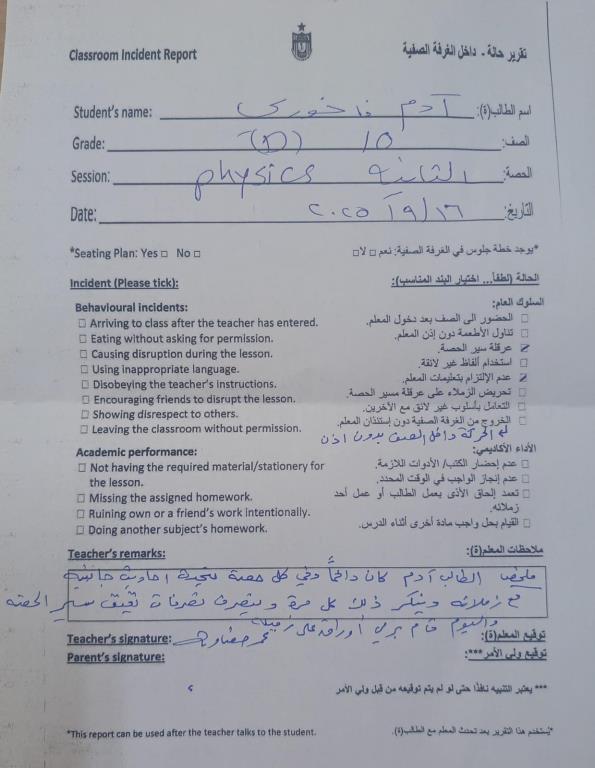 Classroom Incident Report تقرير حالة - داخل الغرفة الصفية
Student's name: آدم فاخوري اسم الطالب(ة):
Grade: (D) 10 الصف:
Session: physics الثانية الحصة:
Date: ٢٠٢٥/٩/١٦ التاريخ:
*Seating Plan: Yes □ No □ *يوجد خطة جلوس في الغرفة الصفية: نعم □ لا□
Incident (Please tick): الحالة (لطفاً... اختيار البند المناسب):
Behavioural incidents: السلوك العام:
□ Arriving to class after the teacher has entered. □ الحضور الى الصف بعد دخول المعلم.
□ Eating without asking for permission. □ تناول الأطعمة دون إذن المعلم.
□ Causing disruption during the lesson. ☑ عرقلة سير الحصة.
□ Using inappropriate language. □ استخدام ألفاظ غير لائقة.
□ Disobeying the teacher's instructions. ☑ عدم الإلتزام بتعليمات المعلم.
□ Encouraging friends to disrupt the lesson. □ تحريض الزملاء على عرقلة مسير الحصة.
□ Showing disrespect to others. □ التعامل بأسلوب غير لائق مع الآخرين.
□ Leaving the classroom without permission. □ الخروج من الغرفة الصفية دون إستئذان المعلم.
الحركة داخل الصف بدون اذن
Academic performance: الأداء الأكاديمي:
□ Not having the required material/stationery for the lesson. □ عدم إحضار الكتب/ الأدوات اللازمة.
□ عدم إنجاز الواجب في الوقت المحدد.
□ Missing the assigned homework. □ تعمد إلحاق الأذى بعمل الطالب أو عمل أحد زملائه.
□ Ruining own or a friend's work intentionally.
□ Doing another subject's homework. □ القيام بحل واجب مادة أخرى أثناء الدرس.
Teacher's remarks: ملاحظات المعلم(ة):
الطالب آدم كان دائماً وفي كل حصة احاديث جانبية
مع زملائه وينكر ذلك كل مرة ويتصرف تصرفات تعيق سير الحصة
واليوم قام برمي أوراق على زميله
Teacher's signature: توقيع المعلم(ة):
Parent's signature: توقيع ولي الأمر***:
*** يعتبر التنبيه نافذًا حتى لو لم يتم توقيعه من قبل ولي الأمر
*This report can be used after the teacher talks to the student. *يُستخدم هذا التقرير بعد تحدث المعلم مع الطالب(ة).